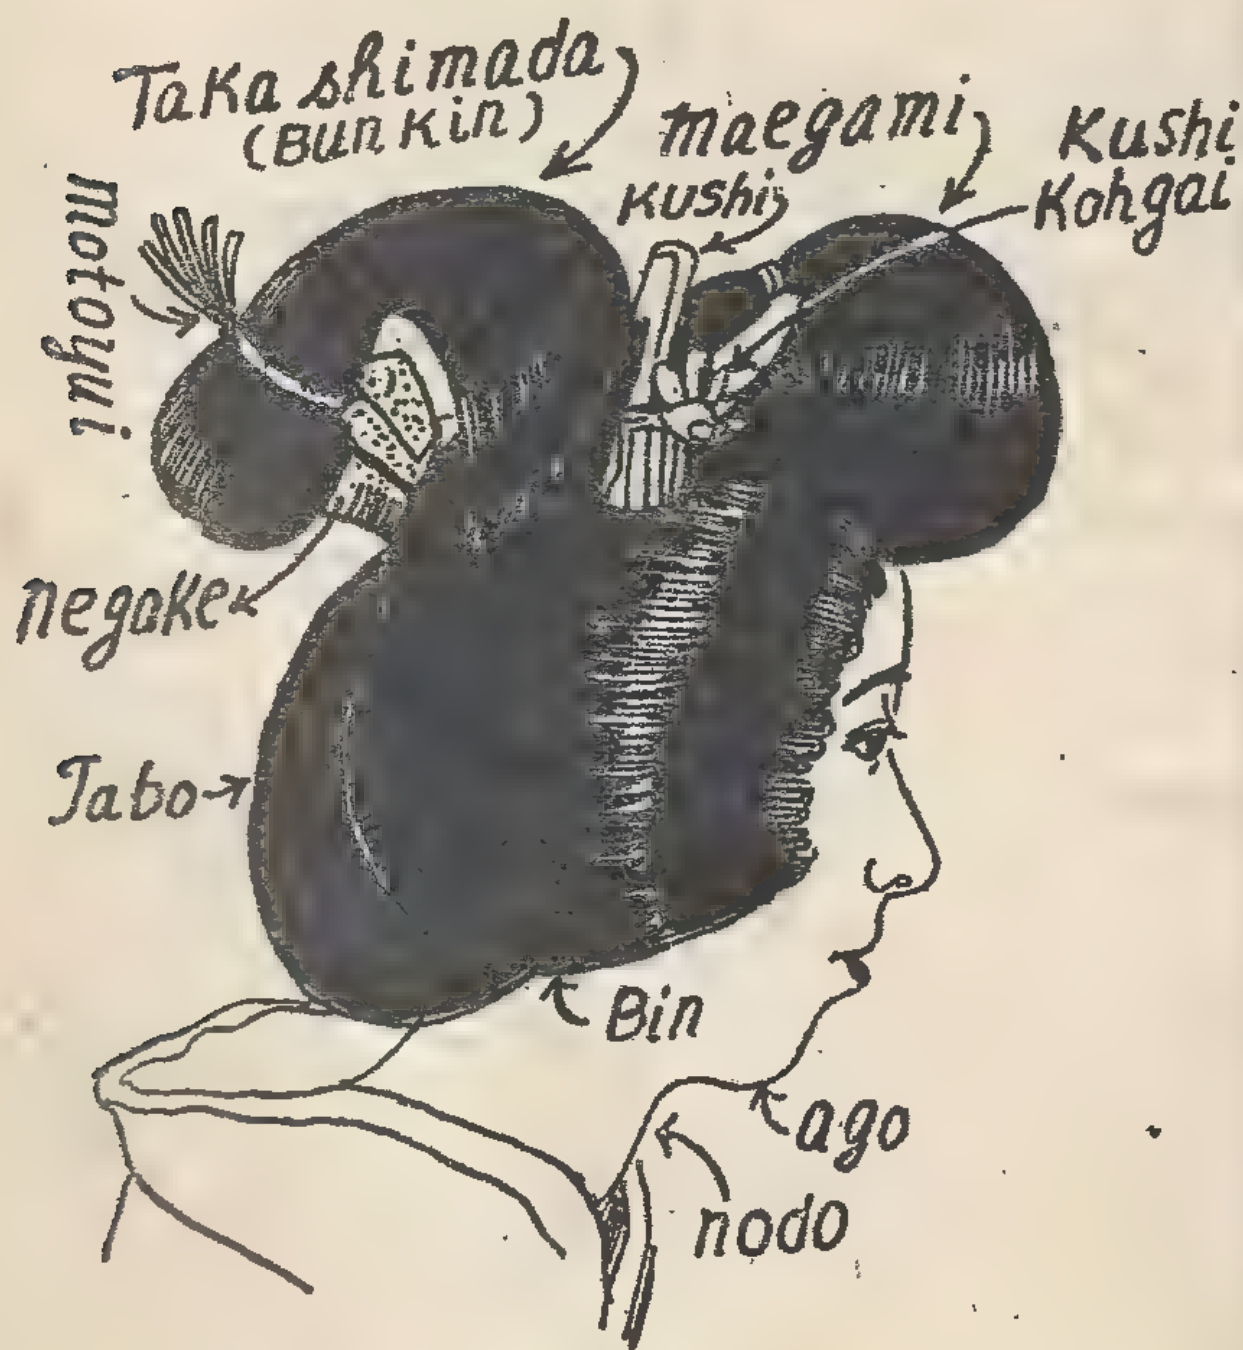 Taka shimada
(Bunkin)
maegami
Kushi
Kushi
Kohgai
motoyui
negake
Tabo
Bin
ago
nodo